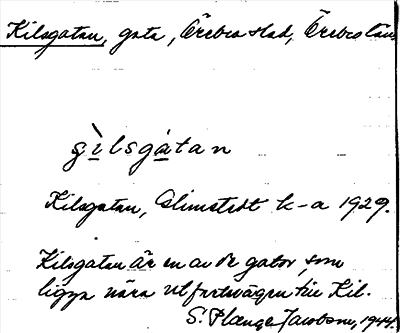 Kilsgatan, gata, Örebro stad, Örebro län
gìlsgátan
Kilsgatan, Almstedt k-a 1929.
Kilsgatan är en av de gator, som
ligga nära utfartsvägen till Kil.
S. Plænge Jacobson, 1944.